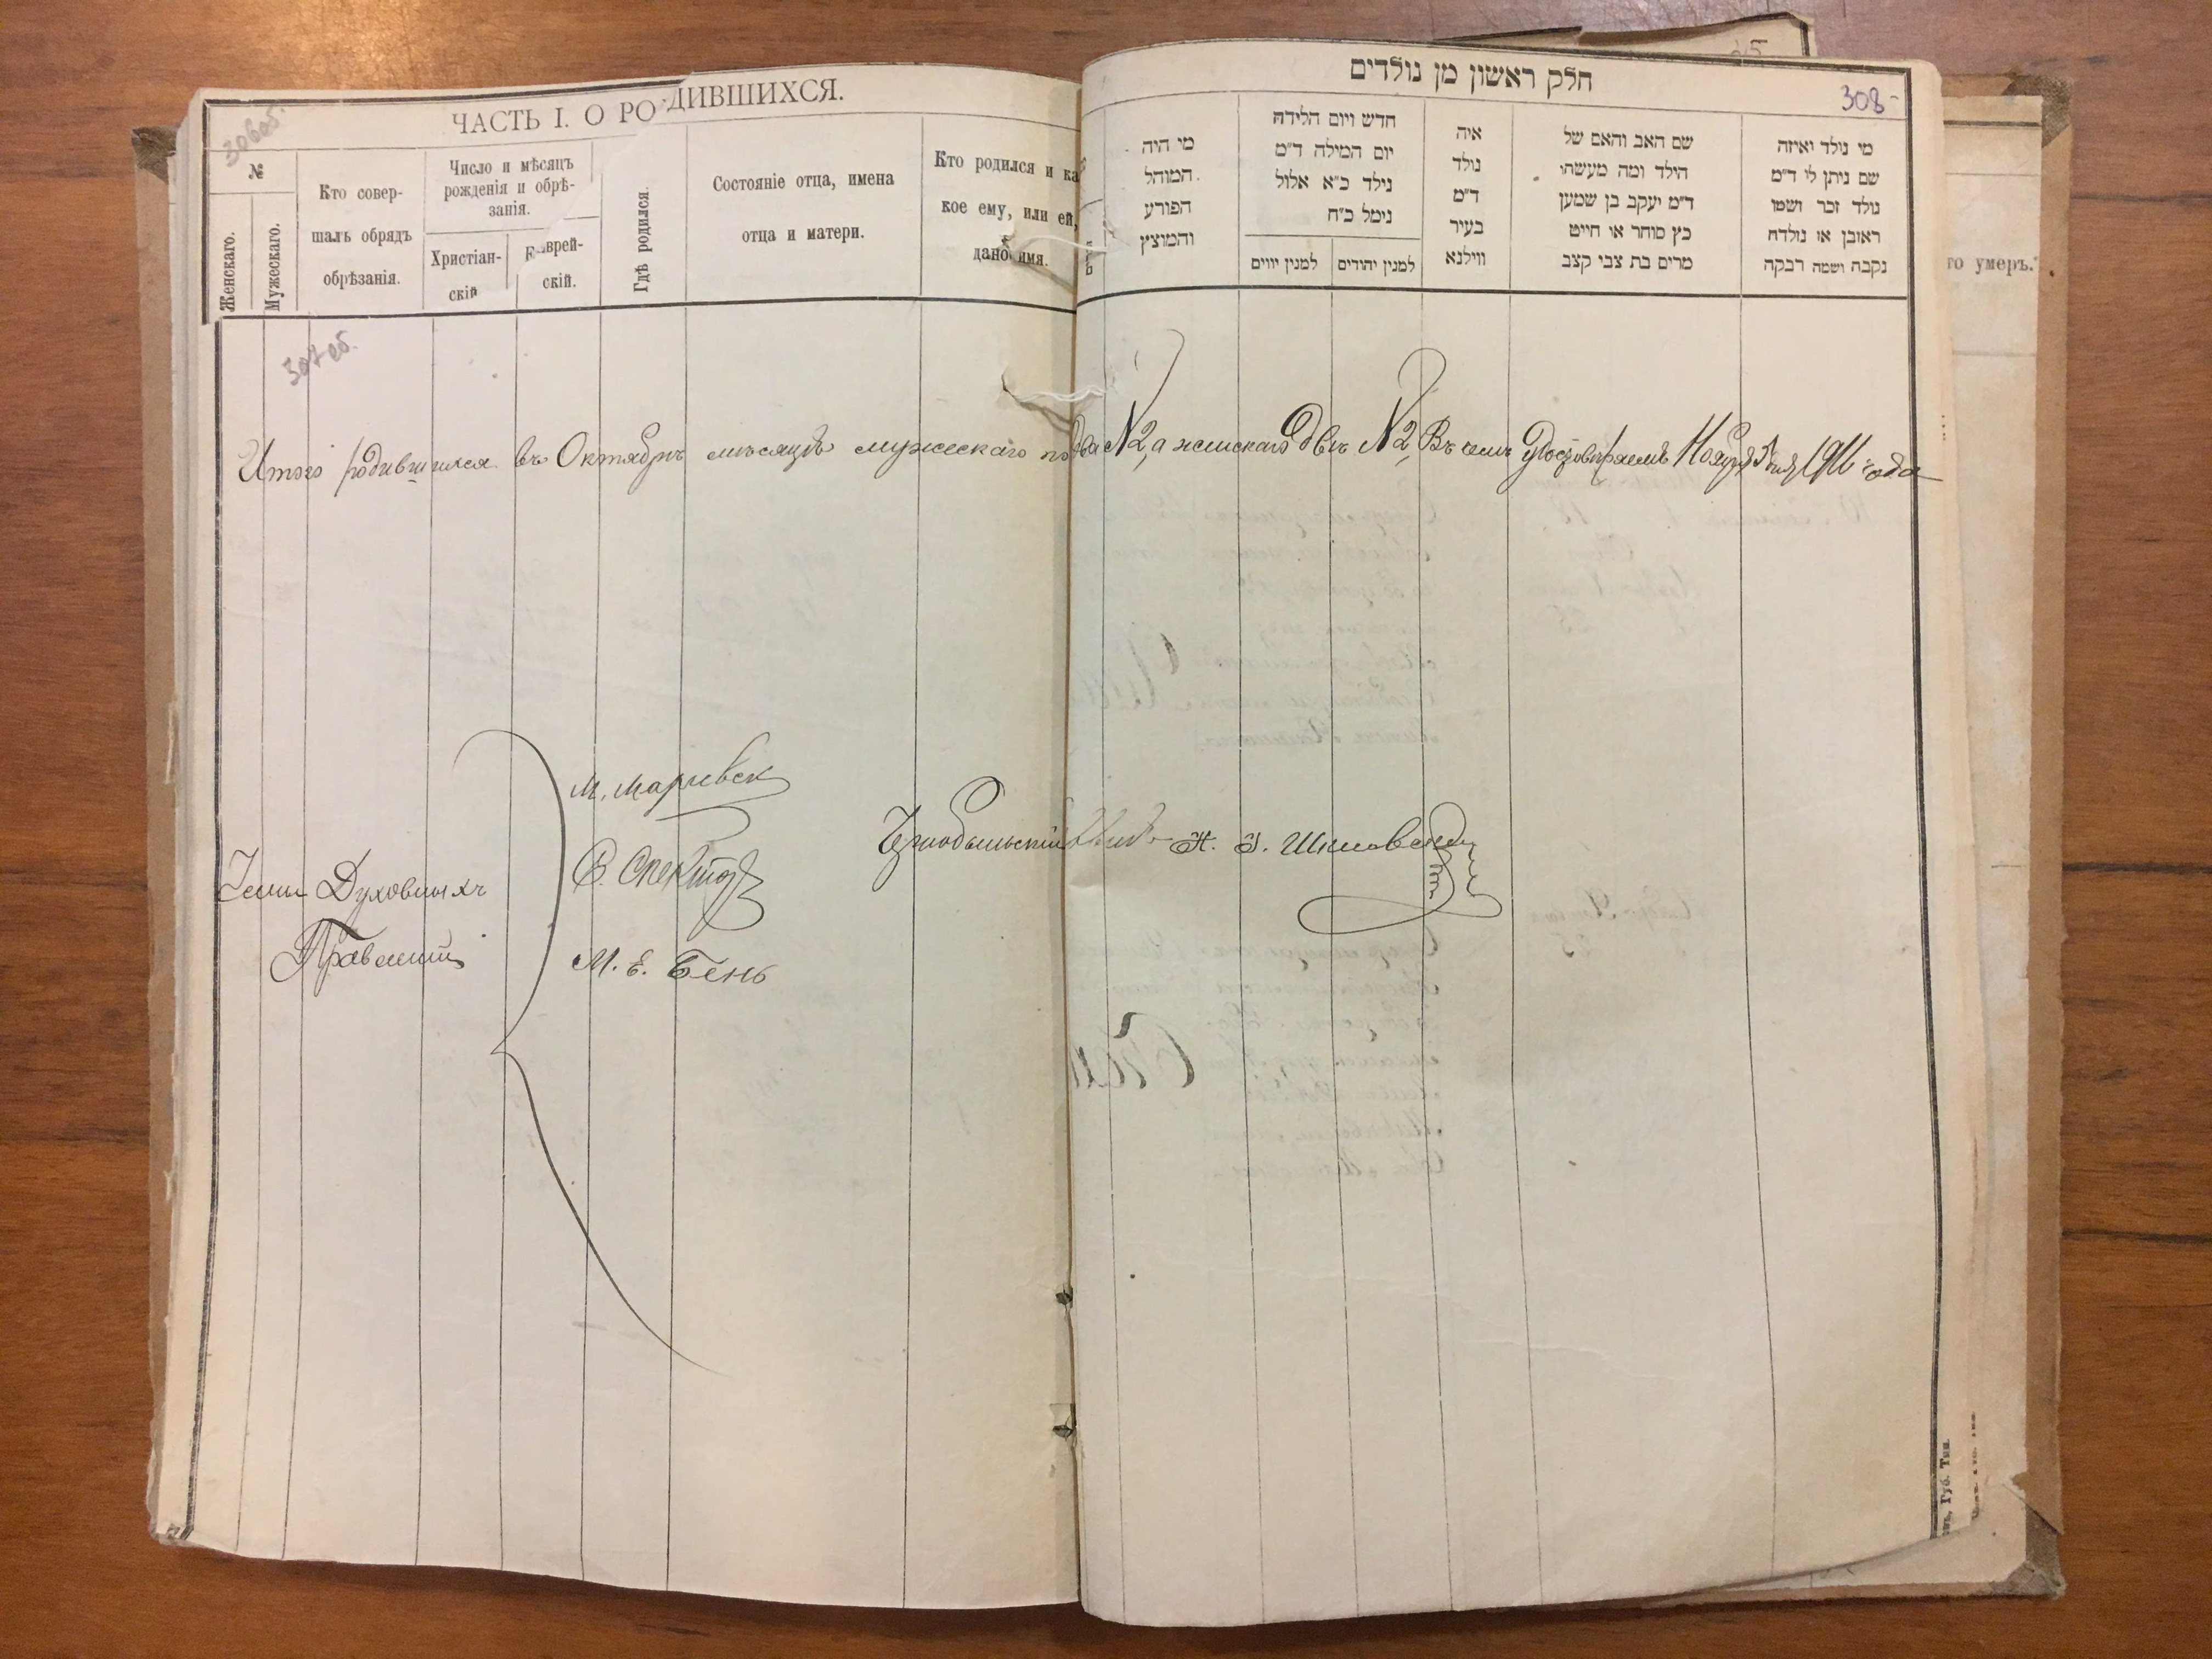 ЧАСТЬ I. О РОДИВШИХСЯ.
306об.
№
Женскаго.
Мужескаго.
Кто совер-
шалъ обрядъ
обрѣзанія.
Число и мѣсяцъ
рожденія и обрѣ-
занія.
Христіан-
скій
Еврей-
скій.
Гдѣ родился.
Состояніе отца, имена
отца и матери.
Кто родился и ка
кое ему, или ей,
дано имя.
חלק ראשון מן נולדים
308
מי נולד ואיזה
שם ניתן לו ד״מ
נולד זכר ושמו
ראובן או נולדה
נקבה ושמה רבקה
שם האב והאם של
הילד ומה מעשהו
ד״מ יעקב בן שמעון
כץ סוחר או חייט
מרים בת צבי קצב
איה
נולד
ד״מ
בעיר
ווילנא
חדש ויום הלידה
יום המילה ד״מ
נילד כ״א אלול
נימל כ״ח
למנין יהודים
למנין יווים
מי היה
המוהל
הפורע
והמוצץ
го умеръ.
307об.
Итого родившихся въ Октябрѣ мѣсяцѣ мужескаго пола №2, а женскаго двѣ №2, Въ чемъ удостовѣряемъ Ноября 1911 года
Члены Духовныхъ
Правленій
С. Спекторъ
М. Е. Бень
Чернобыльскій
Губ. Тип.